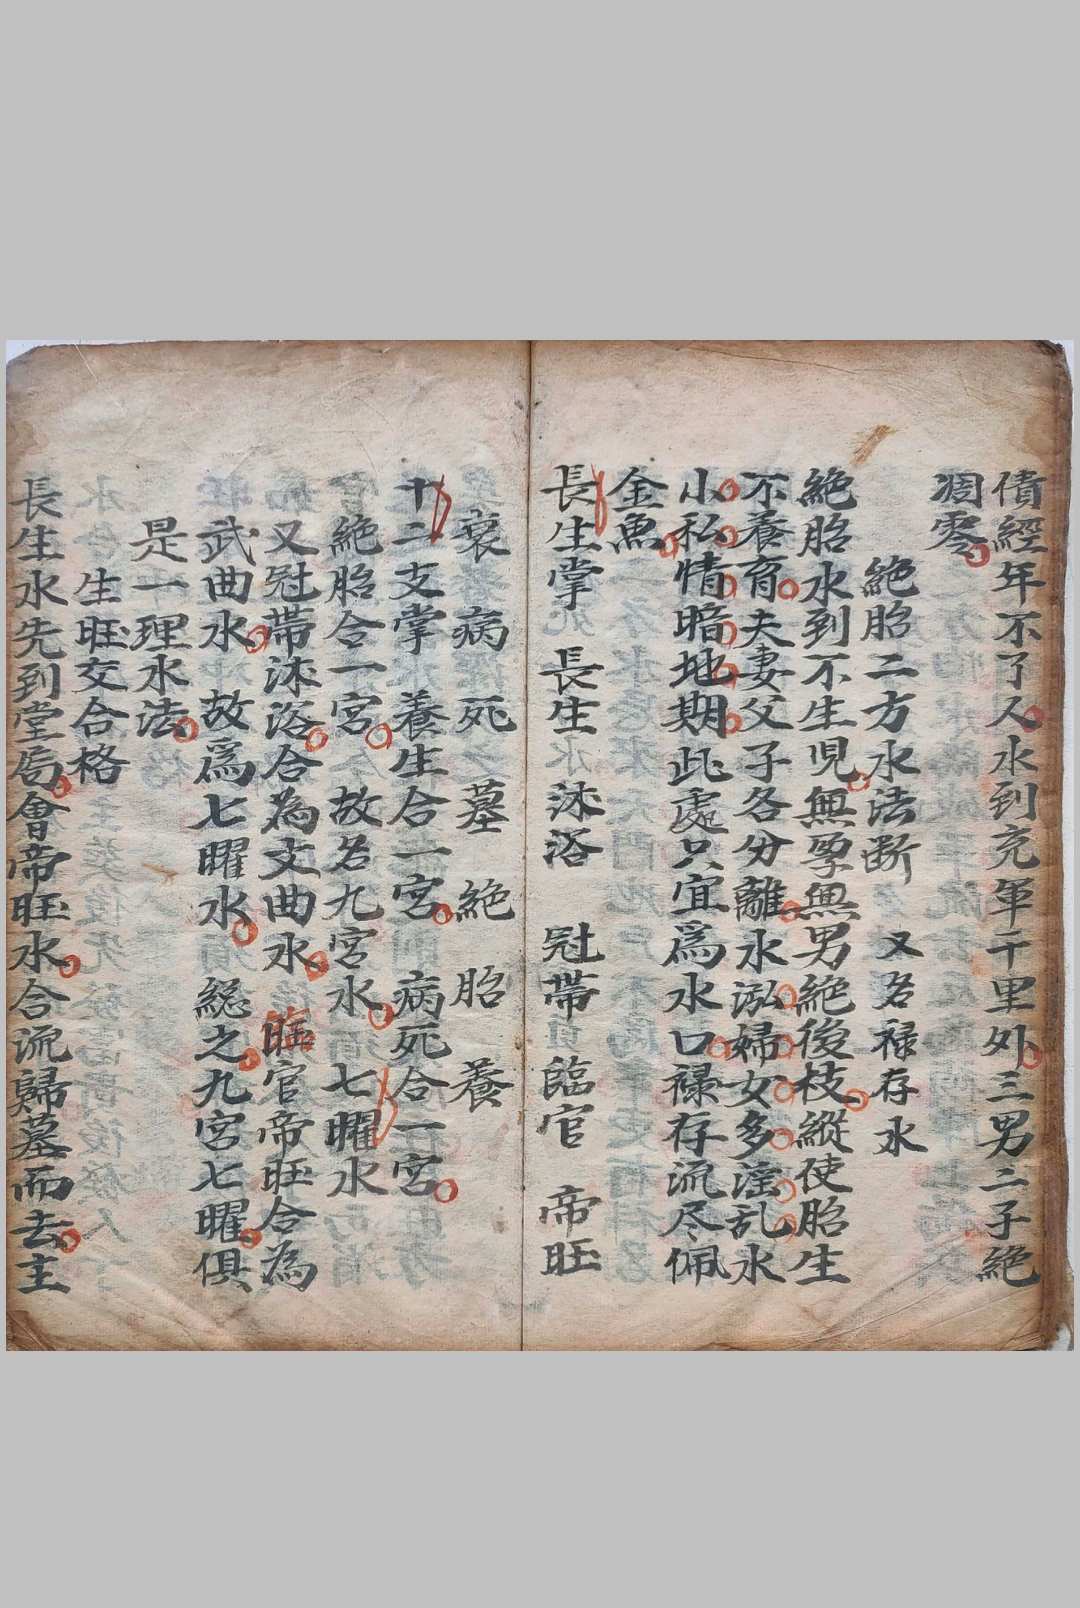 債經年不了人水到充軍千里外三男二子絶
凋零
絶胎二方水法断 又名禄存水
絶胎水到不生児無孕無男絶後枝縱使胎生
不養育夫妻父子各分離水泓婦女多滛乱水
小私情暗地期此處只宜爲水口禄存流尽佩
金魚
長生掌 長生 沐浴 冠帶 臨官 帝旺
衰 病 死 墓 絶 胎 養
十二支掌 養生合一宮 病死合一宮
絶胎合一宮 故名九宮水 七曜水
又冠帶沐浴合為文曲水 臨官帝旺合為
武曲水 故爲七曜水 緫之九宮七曜俱
是一理水法
生旺交合格
長生水先到堂會帝旺水合流歸墓而去主